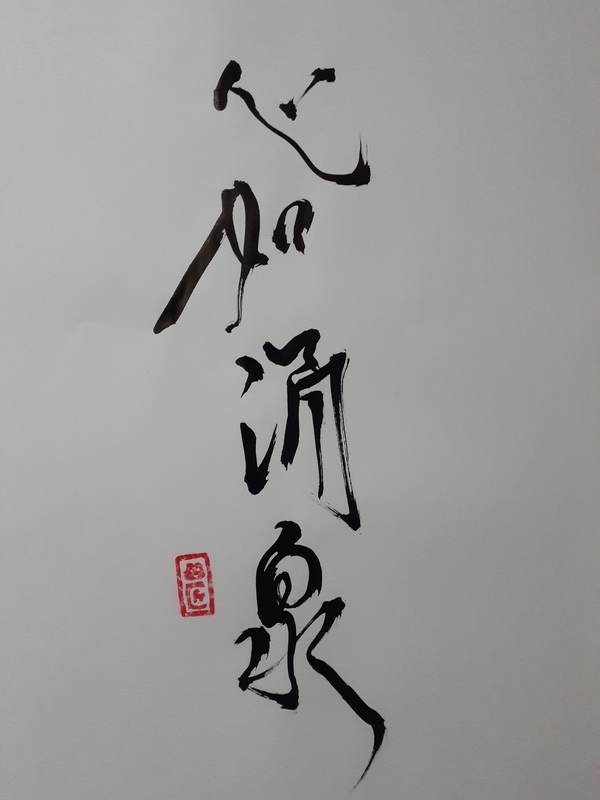 心如涌泉